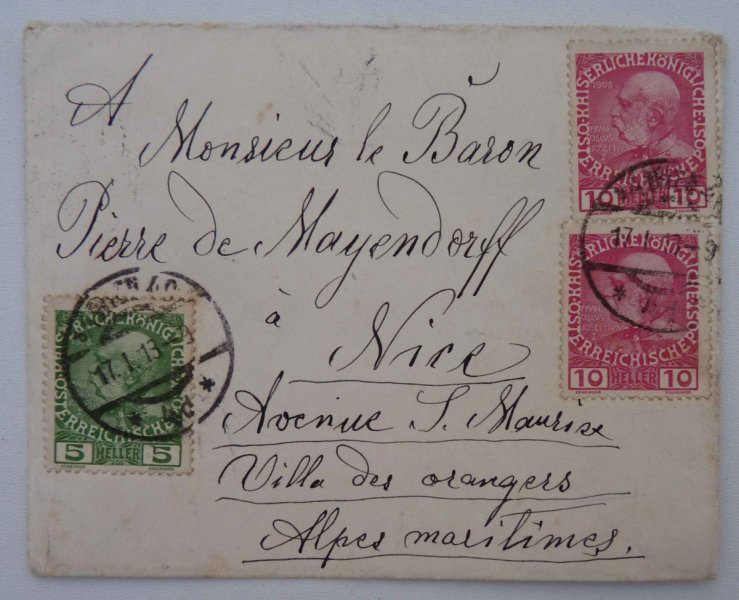 A
Monsieur le Baron
Pierre de Mayendorff
à
Nice
Avenue S. Maurise
Villa des orangers
Alpes maritimes.
KAISERLICHEKÖNIGLICHE
ÖSTERREICHISCHEPOST
1908
FRANZ
JOSEF I
10 10
17. I. 13-9
KAISERLICHEKÖNIGLICHE
ÖSTERREICHISCHEPOST
10 HELLER 10
WIEN 40
17. I. 13
KAISERLICHEKÖNIGLICHE
ÖSTERREICHISCHEPOST
5 HELLER 5